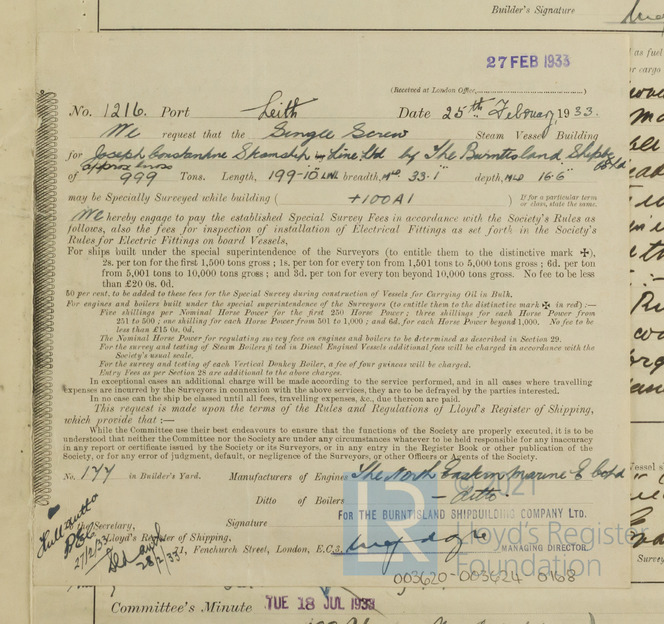 Builder's Signature
27 FEB 1933
(Received at London Office, )
No. 1216. Port Leith Date 25th February 1933.
We request that the Single Screw Steam Vessel Building
for Joseph Constantine Steamship Line Ltd by The Burntisland Shipbg
Co Ltd
approx gross
of 999 Tons. Length, 199-10 LWL breadth, Mld 33-1" depth, MLD 16-6"
may be Specially Surveyed while building ( +100A1 ) If for a particular term or class, state the same.
We hereby engage to pay the established Special Survey Fees in accordance with the Society's Rules as
follows, also the fees for inspection of installation of Electrical Fittings as set forth in the Society's
Rules for Electric Fittings on board Vessels,
For ships built under the special superintendence of the Surveyors (to entitle them to the distinctive mark ✠),
2s. per ton for the first 1,500 tons gross; 1s. per ton for every ton from 1,501 tons to 5,000 tons gross; 6d. per ton
from 5,001 tons to 10,000 tons gross; and 3d. per ton for every ton beyond 10,000 tons gross. No fee to be less
than £20 0s. 0d.
50 per cent. to be added to these fees for the Special Survey during construction of Vessels for Carrying Oil in Bulk.
For engines and boilers built under the special superintendence of the Surveyors (to entitle them to the distinctive mark ✠ in red) :—
Five shillings per Nominal Horse Power for the first 250 Horse Power; three shillings for each Horse Power from
251 to 500; one shilling for each Horse Power from 501 to 1,000; and 6d. for each Horse Power beyond 1,000. No fee to be
less than £15 0s. 0d.
The Nominal Horse Power for regulating survey fees on engines and boilers to be determined as described in Section 29.
For the survey and testing of Steam Boilers fitted in Diesel Engined Vessels additional fees will be charged in accordance with the
Society's usual scale.
For the survey and testing of each Vertical Donkey Boiler, a fee of four guineas will be charged.
Entry Fees as per Section 28 are additional to the above charges.
In exceptional cases an additional charge will be made according to the service performed, and in all cases where travelling
expenses are incurred by the Surveyors in connexion with the above services, they are to be defrayed by the parties interested.
In no case can the ship be classed until all fees, travelling expenses, &c., due thereon are paid.
This request is made upon the terms of the Rules and Regulations of Lloyd's Register of Shipping,
which provide that :—
While the Committee use their best endeavours to ensure that the functions of the Society are properly executed, it is to be
understood that neither the Committee nor the Society are under any circumstances whatever to be held responsible for any inaccuracy
in any report or certificate issued by the Society or its Surveyors, or in any entry in the Register Book or other publication of the
Society, or for any error of judgment, default, or negligence of the Surveyors, or other Officers or Agents of the Society.
No. 177 in Builder's Yard. Manufacturers of Engines The North Eastern Marine E. Co Ld
Ditto of Boilers — ditto —
FOR THE BURNTISLAND SHIPBUILDING COMPANY LTD.
To the Secretary, Signature
Lloyd's Register of Shipping,
71, Fenchurch Street, London, E.C.3. MANAGING DIRECTOR.
27/2/33
28/2/33
LR
Lloyd's Register
Foundation
003620-003624 0168
Committee's Minute TUE 18 JUL 1933